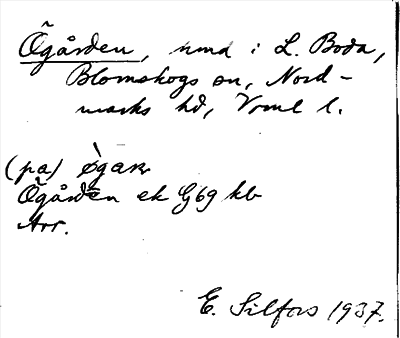 Ögården, nmd i L. Boda,
Blomskogs sn, Nord-
marks hd, Vrml l.
(pa) ø̀gaɴ
Ögården ek G69 kb
Arr.
E. Silfors 1937.